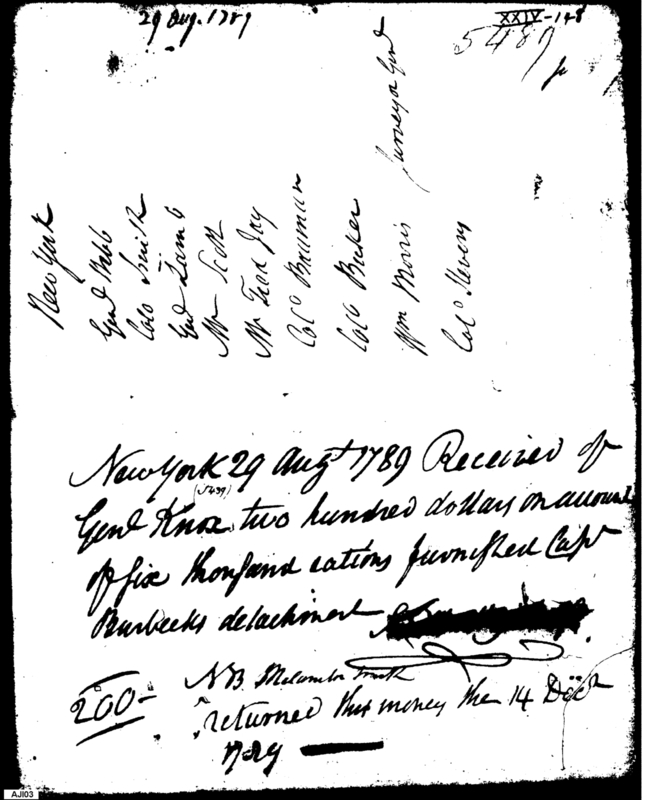 29 Aug. 1789
XXIV-148
5489
New York
Genl Webb
Colo Smith
Genl Lamb
Mr Scott
Mr Jay
Colo Bauman
Colo
Wm Morris Surveyor Genl
Colo Stevens
New York 29 Augt 1789 Received of
(5489)
Genl Knox two hundred dollars on account
of six thousand rations furnished Capt
Burbecks detachment
200- NB Malcombe
returned this money the 14 Decr
1789
AJI03